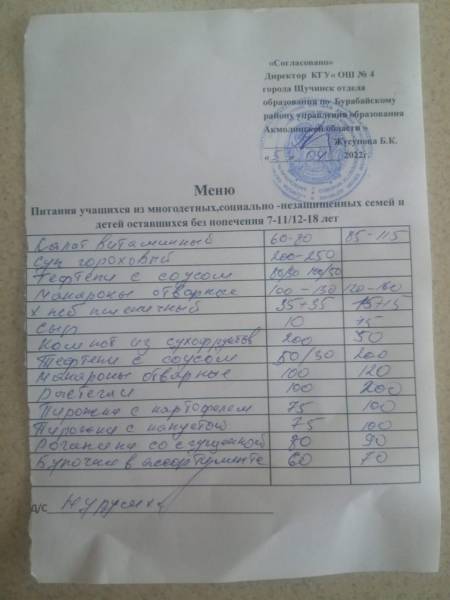 «Согласовано»
Директор КГУ« ОШ № 4
города Щучинск отдела
образования по Бурабайскому
району управления образования
Акмолинской области »
Жусупова Б.К.
« 5 » 04 2022г.
Меню
Питания учащихся из многодетных,социально -незащищенных семей и
детей оставшихся без попечения 7-11/12-18 лет
Салат витаминный 60-80 85-115
Суп гороховый 200-250
Тефтели с соусом
Макароны отварные 100-130 120-180
Хлеб пшеничный 35+35
Сыр 10 15
Компот из сухофруктов 200 50
Тефтели с соусом 50/30 200
Макароны отварные 100 120
100 200
Пирожки с картофелем 75 100
Пирожки с капустой 75 100
со сгущенкой 80 90
Булочки в ассортименте 60 70
д/с